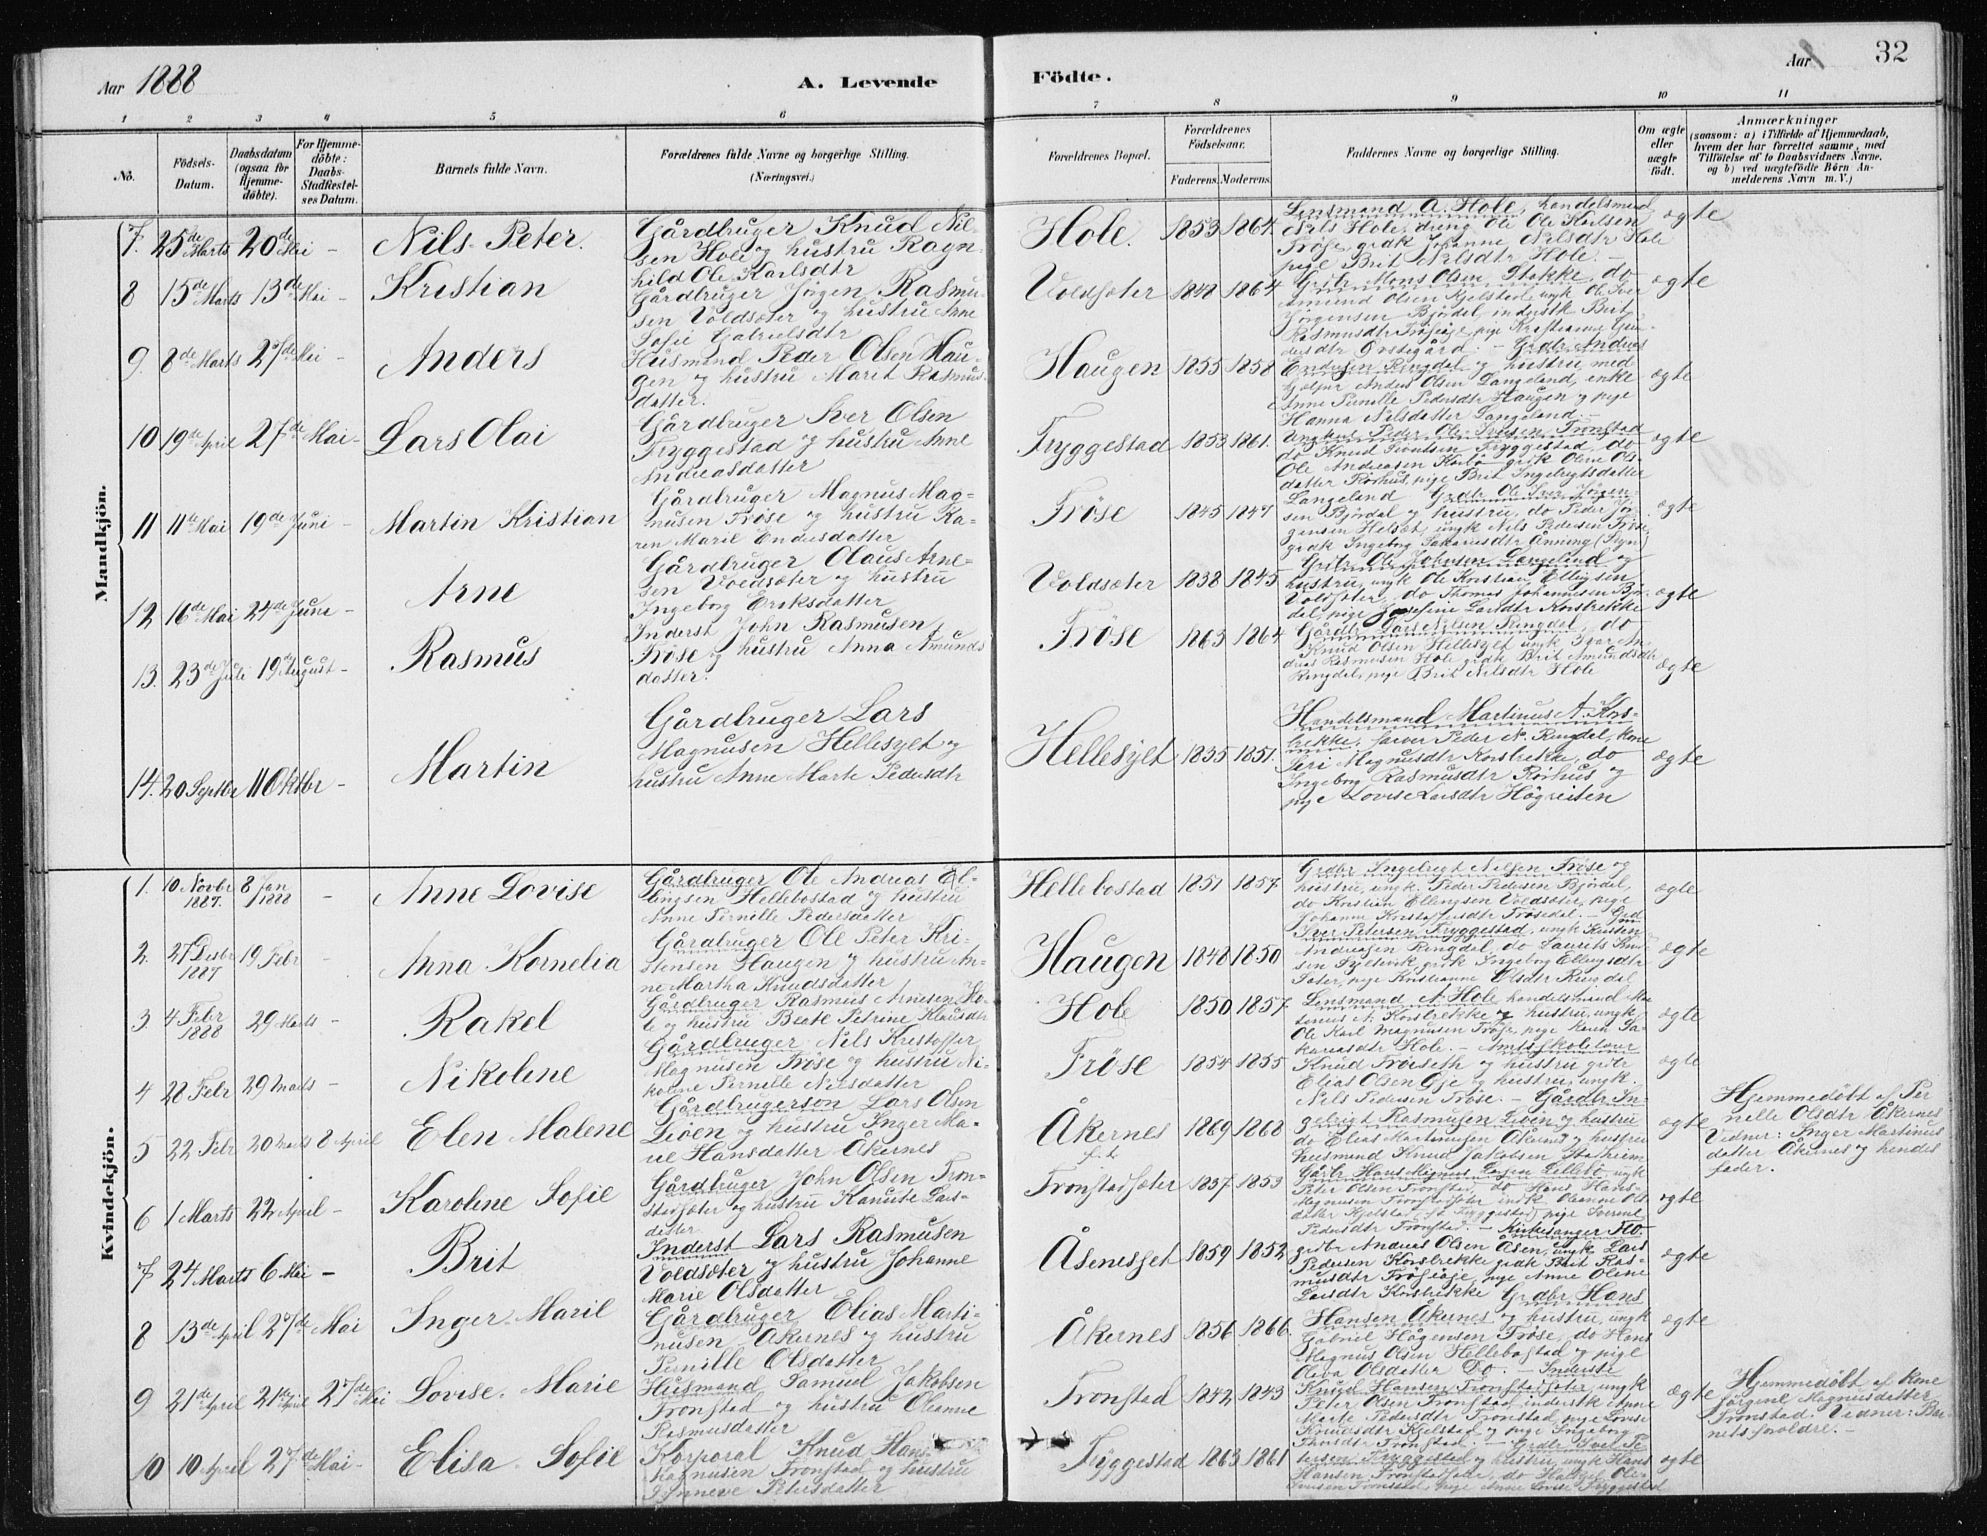 Aar 1888
A. Levende
Födte.
Aar
32
1 2 3 4 5 6 7 8 9 10 11
No.
Födsels-Datum.
Daabsdatum (ogsaa for Hjemmedöbte).
For Hjemmedöbte: Daabs-Stadfæstelses Datum.
Barnets fulde Navn.
Forældrenes fulde Navne og borgerlige Stilling. (Næringsvei.)
Forældrenes Bopæl.
Forældrenes Födselsaar.
Faderens. Moderens.
Faddernes Navne og borgerlige Stilling.
Om ægte eller uægte födt.
Anmærkninger
(saasom: a) i Tilfælde af Hjemmedaab,
hvem der har forrettet samme, med
Tilföielse af to Daabsvidners Navne,
og b) ved uægtefödte Börn Anmelderens Navn m. V.)
Mandkjön.
7. 25de Marts 20de Mai - Nils Peter.
Gårdbruger Knud Nil-
sen Hole og hustru Ragn-
hild Ole Karlsdtr
Hole. 1853 1864
Lensmand A. Hole, handelsmand
Nils Hole, dreng Ole Ole Karlsen
Fröse, grdk Johanne Nilsdtr Hole
pige Brit Nilsdtr Hole. -
ægte
8 15de Marts 13de Mai - Kristian
Gårdbruger Jörgen Rasmu-
sen Voldsæter og hustru Anne
Sofie Gabrielsdtr
Voldsæter 1848 1864
Grdbr Mons Olsen Stakke, do
Amund Olsen Kjelstad, ungk Ole Iver
Jörgensen Björdal, inderstk Brit
ægte
9. 8de Marts 27de Mai - Anders
Husmand Peder Olsen Hau-
gen og hustru Marit Rasmus-
datter.
Haugen 1855 1858
Grdbr Andreas
Endresen Ringdal og hustru med
hjelper Anders Olsen Langeland, enke
Anne Pernille Pedersdtr Haugen og pige
Hanna Nilsdatter Langeland. -
ægte
10 19de April 27de Mai - Lars Olai
Gårdbruger Iver Olsen
Tryggestad og hustru Anne
Andreasdatter
Tryggestad 1853 1861.
Ungkarl Peder Ole Iversen Tronstad
do Knud Tryggestad, do
Ole Andreasen grdk Oline Ols-
datter Rörhus, pige Brit Ingebrigtsdatter
Langeland
ægte
11 11te Mai 19de Juni - Martin Kristian
Gårdbruger Magnus Mag-
nusen Fröse og hustru Ka-
ren Maril Endresdatter
Fröse 1845 1847
Grdbr Ole Iver Jörgen-
sen Björdal og hustru, do Peder Jör-
gensen Helset, ungk Nils Pedersen Fröse,
grdk Ingeborg Sakariasdtr Anning (Sogn)
ægte
12 16de Mai 24de Juni - Arne
Gårdbruger Olaus Arne-
sen Voldsæter og hustru
Ingeborg Eriksdatter
Voldsæter 1838 1845
Grdbr Ole Johnsen Langeland og
hustru, ungk Ole Kristian Ellingsen
Voldsæter, do Thomas Johannesen Björ-
dal, pige Josefine Larsdtr Korsbrekke
ægte
13. 23de Juli 19de August - Rasmus
Inderst John Rasmusen
Fröse og hustru Anna Amunds
datter.
Fröse 1863 1864
Gårdbr Lars Nilsen Ringdal, do
Knud Olsen Hellesylt ungk Iver An-
dreas Rasmusen Hole grdk Brit Amundsdtr
Ringdal, pige Brit Nilsdtr Hole
ægte
14. 20 Septbr 11 Oktbr - Martin
Gårdbruger Lars
Magnusen Hellesylt og
hustru Anne Marte Pedersdtr
Hellesylt 1835 1851.
Handelsmand Martinus A. Kors-
brekke, farver Peder N. Ringdal, kone
Siri Magnusdtr Korsbrekke, do
Ingeborg Rasmusdtr Rörhus og
pige Lovise Larsdtr Högreiten
ægte
Kvindekjön.
1. 10 Novbr 1887. 8 Jan 1888 - Anne Lovise
Gårdbruger Ole Andreas El-
lingsen Hellebostad og hustru
Anne Pernille Pedersdatter
Hellebostad 1851 1857
Grdbr Ingebrigt Nilsen Fröse og
hustru, ungk. Peder Pedersen Björdal,
do Kristian Ellingsen Voldsæter, pige
Johanne Kristoffersdtr Frösedal. -
ægte
2. 27 Desbr 1887 19 Febr - Anna Kornelia
Gårdbruger Ole Peter Kri-
stensen Haugen og hustru An-
ne Martha Knudsdatter
Haugen 1848 1850
Grd
Iver Petersen Tryggestad, ungk Karsten
Andreasen Ringdal, do Laurits Knu-
sen Syltevik, grdk Ingeborg Ellingsdtr
Sæter, pige Kristianne Olsdtr Ringdal
ægte
3 4 Febr 1888 29 Marts - Rakel
Gårdbruger Rasmus Arnesen Ho-
le og hustru Beate Petrine Klausdtr
Hole 1850 1857
Lensmand A. Hole, handelsmand Mar
tinus A. Korsbrekke og hustru, ungk
Ole Karl Magnusen Fröse, pige Karen Sa-
kariasdtr Hole. -
ægte
4 28 Febr 29 Marts - Nikoline
Gårdbruger Nils Kristoffer
Magnusen Fröse og hustru Ni-
koline Pernille Nilsdatter
Fröse 1854 1855
Amtsskolelærer
Knud Fröiseth og hustru, grdbr
Elias Olsen Gje og hustru, ungk.
Nils Pedersen Fröse. -
ægte
5 22 Febr 20 Marts 8 April Elen Malene
Gårdbrugersön Lars Olsen
Liöen og hustru Inger Ma-
rie Hansdatter Åkernes
Åkernes 1869 1868
Gårdbr In-
gebrigt Rasmusen Liöen og hustru
do Elias Martinusen Åkernes og hustru
husmand Knud Jakobsen
ægte
Hjemmedöbt af Per-
nelle Olsdtr Åkernes
Vidner: Inger Martinus
datter Åkernes og hendes
fader.
6 1 Marts 22 April - Karoline Sofie
Gårdbruger John Olsen Tron-
stadsæter og hustru Kanute Lars-
datter
Tronstadsæter 1857 1853
Gårdbr Hans Magnus Larsen Lillebö, ungk
Peter Olsen Tronstad, do Hans Hans-
Pedersdtr Tronstad. -
ægte
7 24 Marts 6 Mai - Brit
Inderst Lars Rasmusen
Voldsæter og hustru Johanne
Marie Olsdatter
Åsenesylt 1859 1852
Kirkesanger Ho-
grdbr Andreas Olsen Åsen, ungk Lars
Pedersen Korsbrekke grdk Brit Ras-
musdtr Frösöie, pige Anne Oline
Larsdtr Korsbrekke
ægte
8 13de April 27de Mai Inger Maril
Gårdbruger Elias Marti-
nusen Åkernes og hustru
Pernille Olsdatter
Åkernes 1856 1866
Grdbr Hans
Hansen Åkernes og hustru, ungk
Gabriel Hågensen Fröse, do Hans
Magnus Olsen Hellebostad og pige
Oliva Olsdatter Do. -
ægte
9 21de April 21de April 27de Mai Lovise Marie
Husmand Samuel Jakobsen
Tronstad og hustru Oleanne
Rasmusdatter
Tronstad 1842 1843
Inderst
Knud Hansen Tronstadsæter, ungk
Peter Olsen Tronstad, inderstk Anne
Marte Pedersdtr Tronstad, pige Lovise
Knudsdtr Kjelstad og pige Ingeborg
ægte
Hjemmedöbt af kone
Jörgine Magnusdatter
Tronstad. Vidner: Bar-
nets foreldre. -
10 10 April 27de Mai - Elisa Sofie
Korporal Knud Hans
Magnusen Tronstad og hustru
Synneve Petersdatter
Tryggestad 1863 1861
Grdbr Iver Pe-
tersen Tryggestad og hustru, ungk Hans
ægte